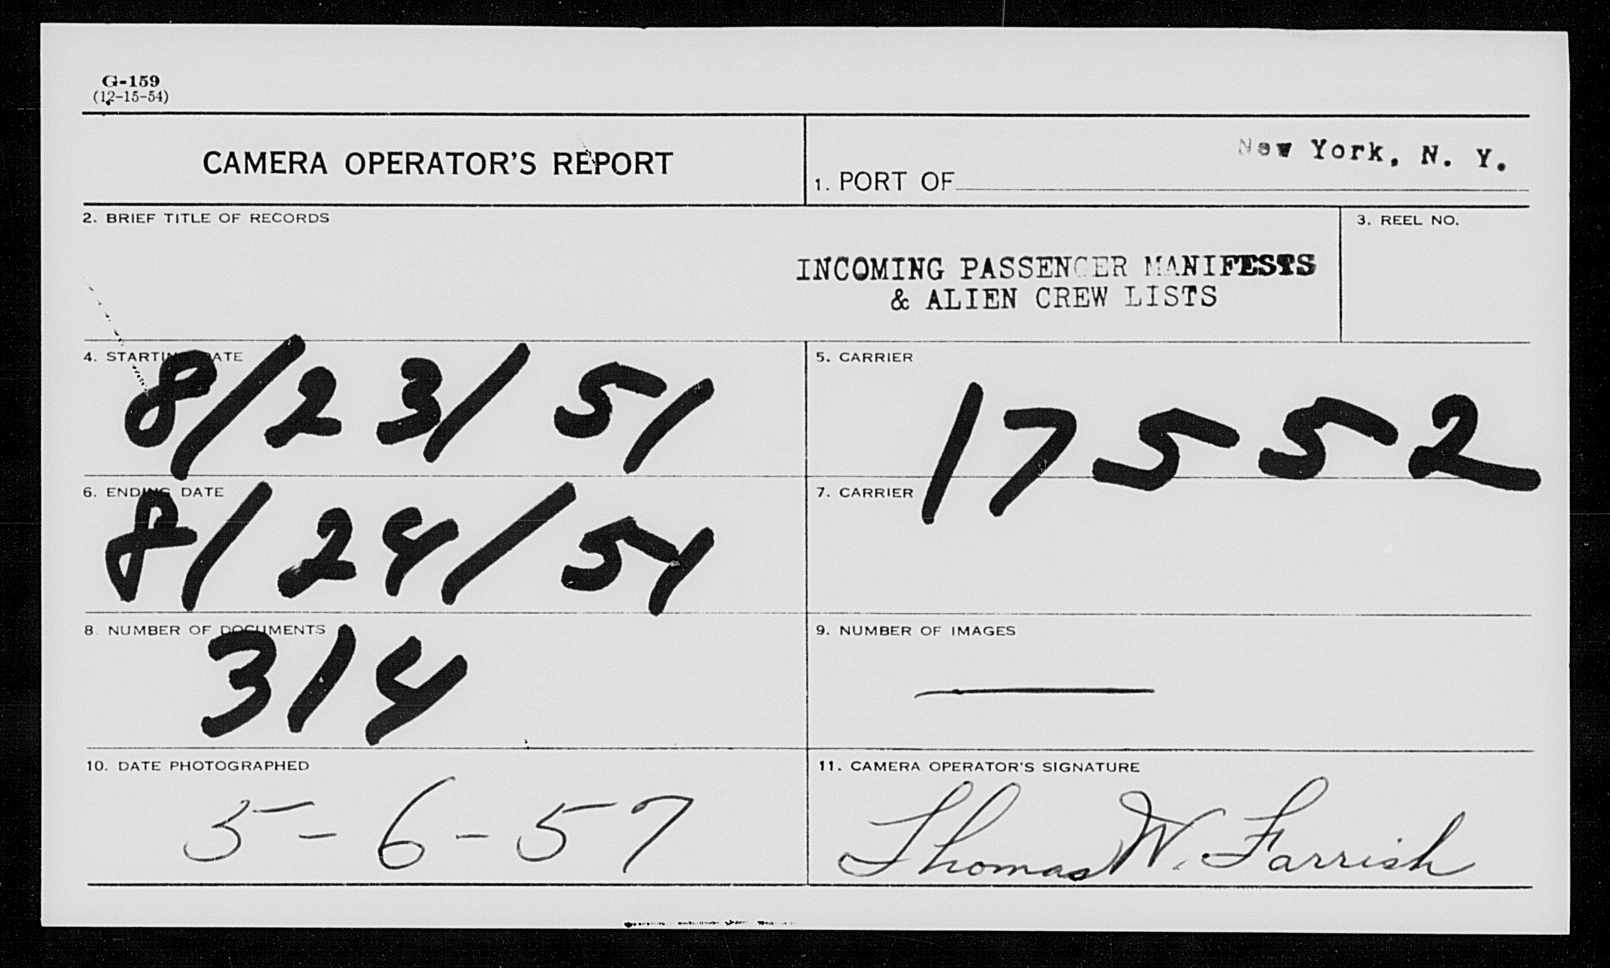 G-159
(12-15-54)
CAMERA OPERATOR'S REPORT
1. PORT OF New York, N. Y.
2. BRIEF TITLE OF RECORDS
INCOMING PASSENGER MANIFESTS
& ALIEN CREW LISTS
3. REEL NO.
4. STARTING DATE
8/23/51
5. CARRIER
17552
6. ENDING DATE
8/24/51
7. CARRIER
8. NUMBER OF DOCUMENTS
314
9. NUMBER OF IMAGES
—
10. DATE PHOTOGRAPHED
5-6-57
11. CAMERA OPERATOR'S SIGNATURE
Thomas W. Farrish